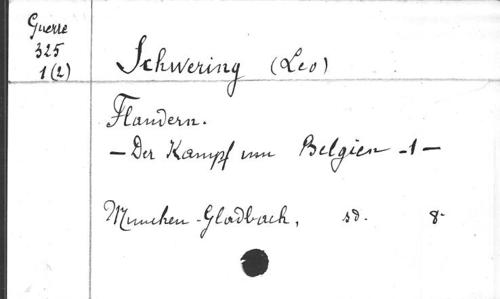 Guerre
325
1(2)
Schwering (Leo)
Flandern.
— Der Kampf um Belgien -1—
Munchen-Gladbach, sd. 8-